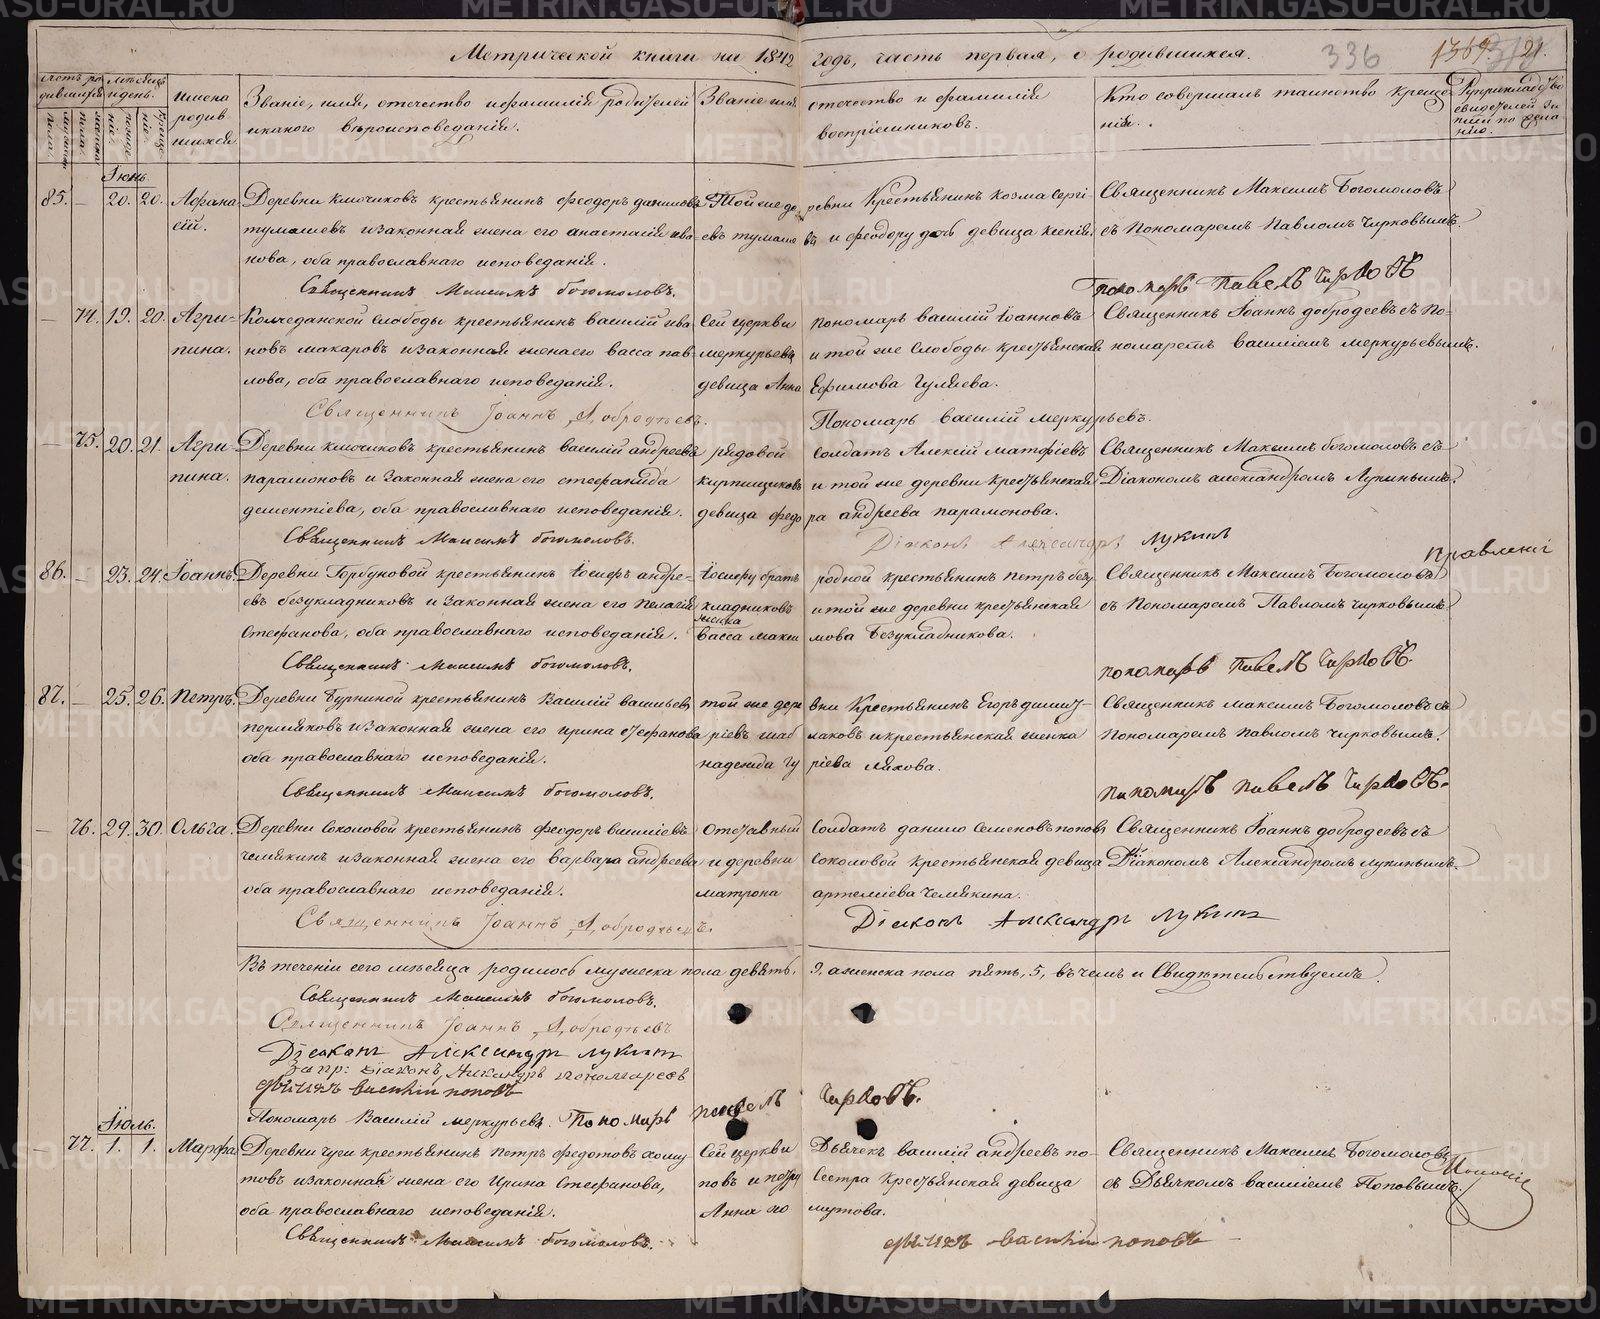 Метрической книги на 1842 годъ, часть первая, о родившихся.
336
1369
21.
Имена родившихся.
Званіе, имя, отечество и фамилія родителей
и какого вѣроисповеданія.
Званіе имя отечество и фамилія
воспріемниковъ.
Кто совершалъ таинство крещенія.
Іюнь
85. — 20. 20. Афана- Деревни Ключиковъ крестьянинъ Феодоръ даниловъ Той же де- ревни Крестьянинъ Козма Сергі- Священникъ Максимъ Богомоловъ
сій. тумашевъ и законная жена его анастасія ива- евъ тумаше въ и феодору дочь девица ксенія. съ Пономаремъ Павломъ Чирковымъ.
нова, оба православнаго исповеданія.
Священникъ Максимъ богомоловъ. пономарь Павелъ Чирковъ
— 74. 19. 20. Агри- Колчеданской Слободы крестьянинъ василій ива- Сей церкви пономарь василій Іоанновъ Священникъ Іоаннъ добродеевъ съ По-
пина. новъ макаровъ и законная жена его васса пав- меркурьевъ и той же Слободы крестьянская номаремъ василіемъ меркурьевымъ.
лова, оба православнаго исповеданія. девица Анна Ефимова Гуляева.
Священникъ Іоаннъ Добродѣевъ. Пономарь василій меркурьевъ.
— 75. 20. 21. Агри- Деревни ключиковъ крестьянинъ василій андреевъ рядовой Солдатъ Алексій матфіевъ Священникъ Максимъ богомоловъ съ
пина. парамоновъ и законная жена его стефанида кирпищиковъ и той же деревни крестьянская Діакономъ александромъ Лукинымъ.
дементіева, оба православнаго исповеданія. девица федо ра андреева парамонова.
Священникъ Максимъ богомоловъ. Діаконъ Александръ Лукинъ
правленіі
86. — 23. 24. Іоаннъ. Деревни Горбуновой крестьянинъ Іосифъ андре- Іосифу братъ родной крестьянинъ петръ безу Священникъ Максимъ Богомоловъ
евъ безукладниковъ и законная жена его пелагія кладниковъ и той же деревни крестьянская съ Пономаремъ Павломъ чирковымъ.
женка
Стефанова, оба православнаго исповеданія. васса макси мова Безукладникова.
Священникъ Максимъ богомоловъ. пономарь Павелъ Чирковъ.
87. — 25. 26. Петръ. Деревни Буркиной крестьянинъ Василій васильевъ той же дере вни Крестьянинъ Егоръ димит- Священникъ максимъ Богомоловъ съ
пермяковъ и законная жена его ирина стефанова ріевъ шаб лаковъ и крестьянская женка Пономаремъ павломъ чирковымъ.
оба православнаго исповеданія. надежда Гу ріева ляхова.
Священникъ Максимъ богомоловъ. пономарь павелъ Чирковъ.
— 76. 29. 30. Ольга. Деревни Соколовой крестьянинъ феодоръ василіевъ Отставный Солдатъ данило Семеновъ поповъ Священникъ Іоаннъ добродеевъ съ
чемякинъ и законная жена его варвара андреева и деревни Соколовой крестьянская девица Діакономъ Александромъ лукинымъ.
оба православнаго исповеданія. матрона артеміева Чемякина.
Священникъ Іоаннъ Добродѣевъ. Діаконъ Александръ Лукинъ
Въ теченіи сего мѣсяца родилось мужеска пола девять, 9, а женска пола пять, 5, въ чемъ и Свидѣтельствуемъ.
Священникъ Максимъ богомоловъ.
Священникъ Іоаннъ Добродѣевъ
Діаконъ Александръ лукинъ
запр: діаконъ, Александръ пономаревъ
дьячекъ василій поповъ
Пономарь Василій меркурьевъ. Пономарь павелъ Чирковъ.
Іюль.
— 77. 1. 1. Марфа Деревни чуги крестьянинъ петръ федотовъ хому Сей церкви Дьячекъ василій андреевъ по- Священникъ Максимъ Богомоловъ
товъ и законная жена его Ирина Стефанова, повъ и петру Сестра крестьянская девица съ Дьячкомъ василіемъ Поповымъ.
оба православнаго исповеданія. Анна хо мутова.
Священникъ Максимъ богомоловъ. дьячекъ василій поповъ
METRIKI.GASO-URAL.RU